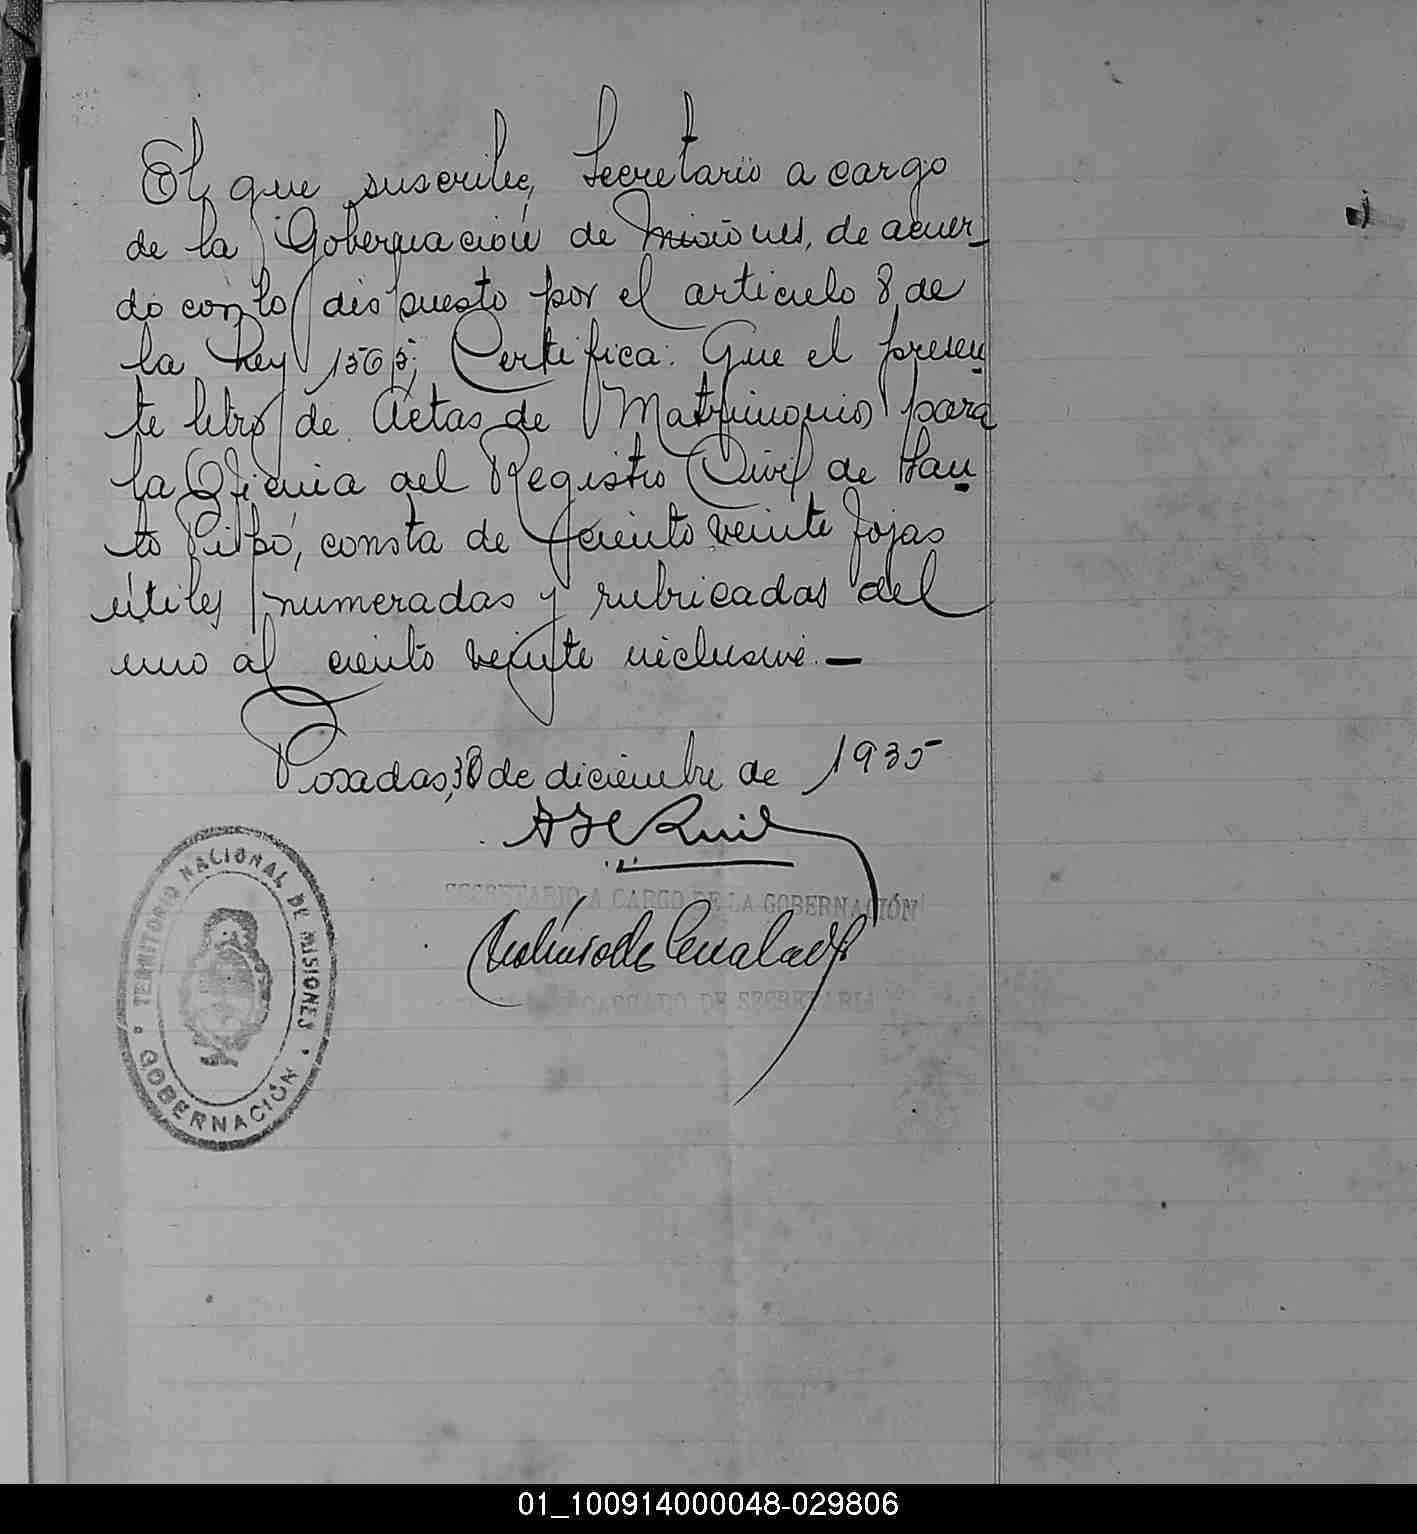 El que suscribe, Secretario a cargo
de la Gobernación de Misiones, de acuer-
do con lo dispuesto por el articulo 8 de
la Ley 1565; Certifica: Que el presen-
te libro de Actas de Matrimonios para
la Oficina del Registro Civil de Han-
to Pilpó, consta de ciento veinte fojas
útiles numeradas y rubricadas del
uno al ciento veinte inclusive.—
Posadas, 30 de diciembre de 1935
SECRETARIO A CARGO DE LA GOBERNACIÓN
ENCARGADO DE SECRETARIA
TERRITORIO NACIONAL DE MISIONES
GOBERNACIÓN
01_100914000048-029806